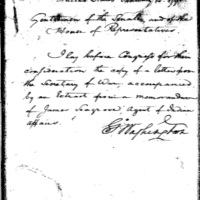 United States January 10. 179
Gentlemen of the Senate, and of the
House of Representatives.
I lay before Congress for their
consideration the copy of a letter from
the Secretary of War, accompanied
by an Extract from a memorandum
of James Seagrove, Agent of Indian
affairs.
G. Washington